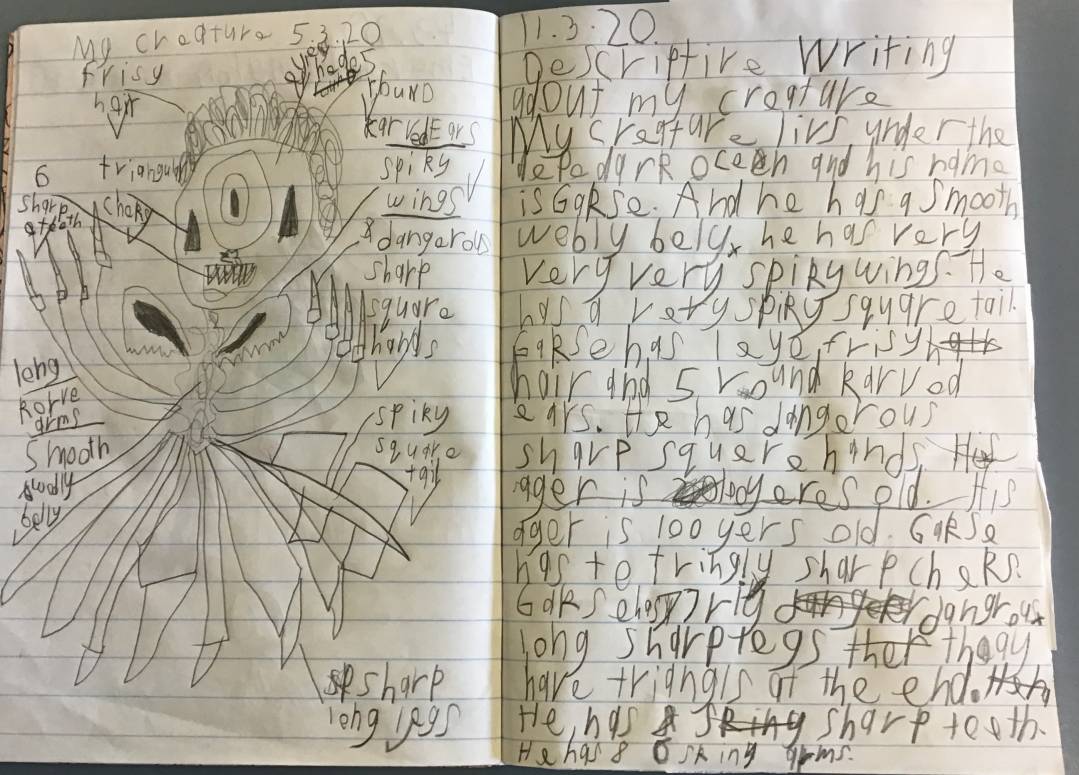 My creature 5.3.20
frisy
hair
round
karvedEars
triangular
cheks
spiky
wings
& dangerous
sharp
square
hands
6
sharp
teeth
long
korve
arms
smooth
belly
spiky
square
tail
sharp
long legs
11.3.20
Descriptive Writing
adout my creature
My creature livs under the
depe dark oceen and his name
is Garse. And he has a smooth
webly bely, he has very
very very spiky wings. He
has a very spiky square tail.
Garse has frisy hair
hair and 5 round karved
ears. He has dangerous
sharp squere hands. His
ager is yeres old. His
ager is 100 yers old. Garse
has to tringly sharp cheks.
Garse has danger dangrous
long sharp legs ther thay
have triangls at the end.
He has sking sharp teeth.
He has 8 sking arms.